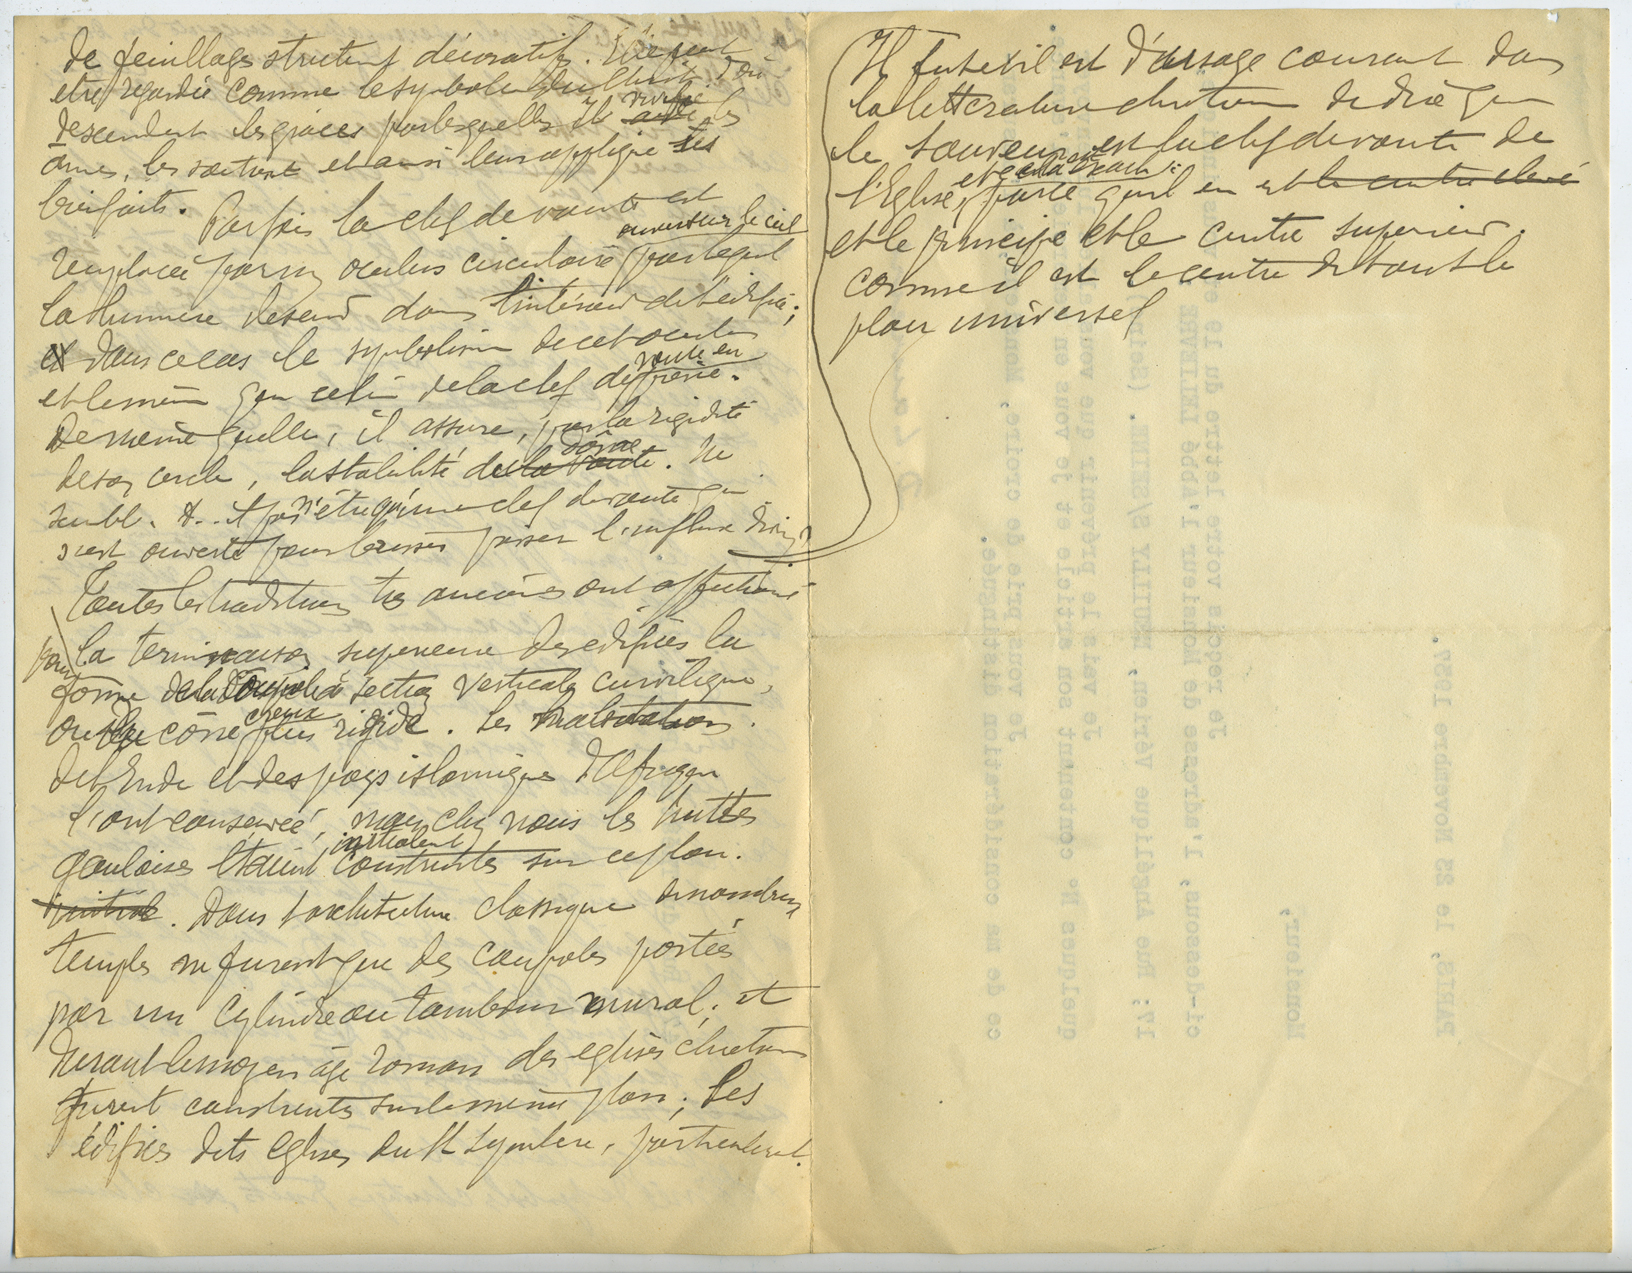 de feuillages strictement décoratifs. Elle peut
être regardée comme le symbole du Christ d'où
descendent les grâces par lesquelles il vivifie les
âmes, les soutient et ainsi leur applique ses
bienfaits.
Parfois la clef de voute est
remplacée par un oculus circulaire ouvert sur le ciel par lequel
la lumière descend dans l'intérieur de l'édifice;
et dans ce cas le symbolisme de cet oculus
est le même que celui de la clef de voute en
De même qu'elle, il assure, par la rigidité
de son cercle, la stabilité du dôme. Ne
semble-t-il pas n'être qu'une clef de voute qui
s'est ouverte pour laisser passer l'influx divin?
Toutes les traditions très anciennes ont affectionné
pour la terminaison supérieure des édifices la
forme de la coupole à section verticale curviligne,
ou du cône creux plus rigide. Les habitations
de l'Inde et des pays islamiques d'Afrique
l'ont conservée, mais chez nous les huttes
gauloises étaient initialement construites sur ce plan.
initial. Dans l'architecture classique de nombreux
temples ne furent que des coupoles portées
par un cylindre ou tambour mural; et
durant le moyen âge roman des églises chrétiennes
furent construites sur le même plan; les
édifices dits églises du St Sépulcre, particulièrement.
Il est d'usage courant dans
la littérature chrétienne de dire que
le Sauveur est la clef de voute de
l'Eglise, et cela parce qu'il en est le centre élevé
et le principe et le centre supérieur.
comme il est le centre de tout le
plan universel
PARIS, le 23 Novembre 1937.
Monsieur,
Je reçois votre lettre du
ci-dessous, l'adresse de Monsieur l'Abbé
17, Rue Angélique Vérien, NEUILLY S/SEINE.
Je vais le prévenir que
quelques N° contenant son article et je vous en
Je vous prie de croire, Monsieur,
ce de ma considération distinguée.